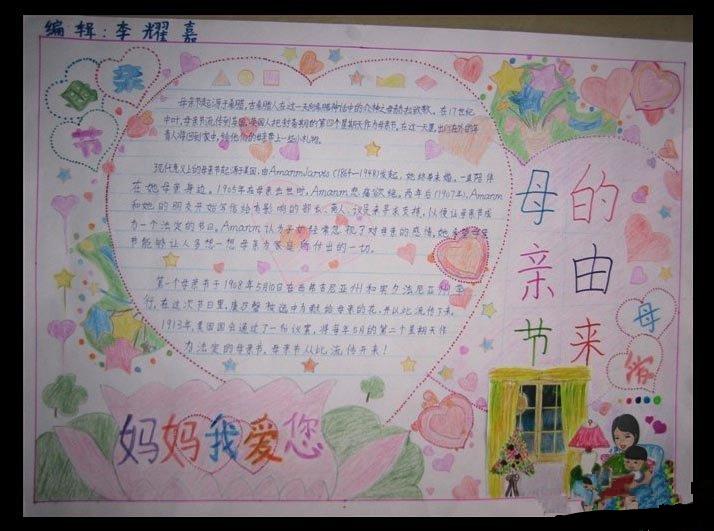 编辑:李耀嘉
母亲节
母亲节起源于希腊,古希腊人在这一天向希腊神话中的众神之母赫拉致敬。在17世纪
中叶,母亲节流传到英国,英国人把封斋期的第四个星期天作为母亲节。在这一天里,出门在外的年
青人将回到家中,给他们的母亲带上一些小礼物。
现代意义上的母亲节起源于美国,由AmanmJarvis(1864-1948)发起,她终身未婚,一直陪伴
在她母亲身边。1905年在母亲去世时,Amanm悲痛欲绝。两年后(1907年),Amanm
和她的朋友开始写信给有影响的部长、商人、议员来寻求支持,以便让母亲节成
为一个法定的节日。Amanm认为子女经常忽视了对母亲的感情,她希望母亲
节能够让人多想一想母亲为家庭所付出的一切。
第一个母亲节于1908年5月10日在西弗吉尼亚州和宾夕法尼亚州举
行,在这次节日里,康乃馨被选中为献给母亲的花,并以此流传下来。
1913年,美国国会通过了一份议案,将每年5月的第二个星期天作
为法定的母亲节。母亲节从此流传开来!
母亲节
的由来
母
妈妈我爱您